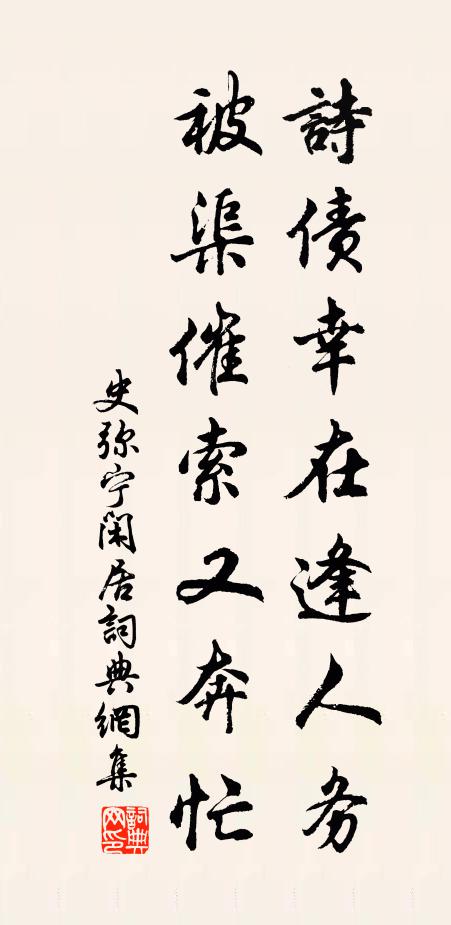 詩债幸在逢人务
被渠催索又奔忙
史弥宁闲居詞典網集
詞典网印